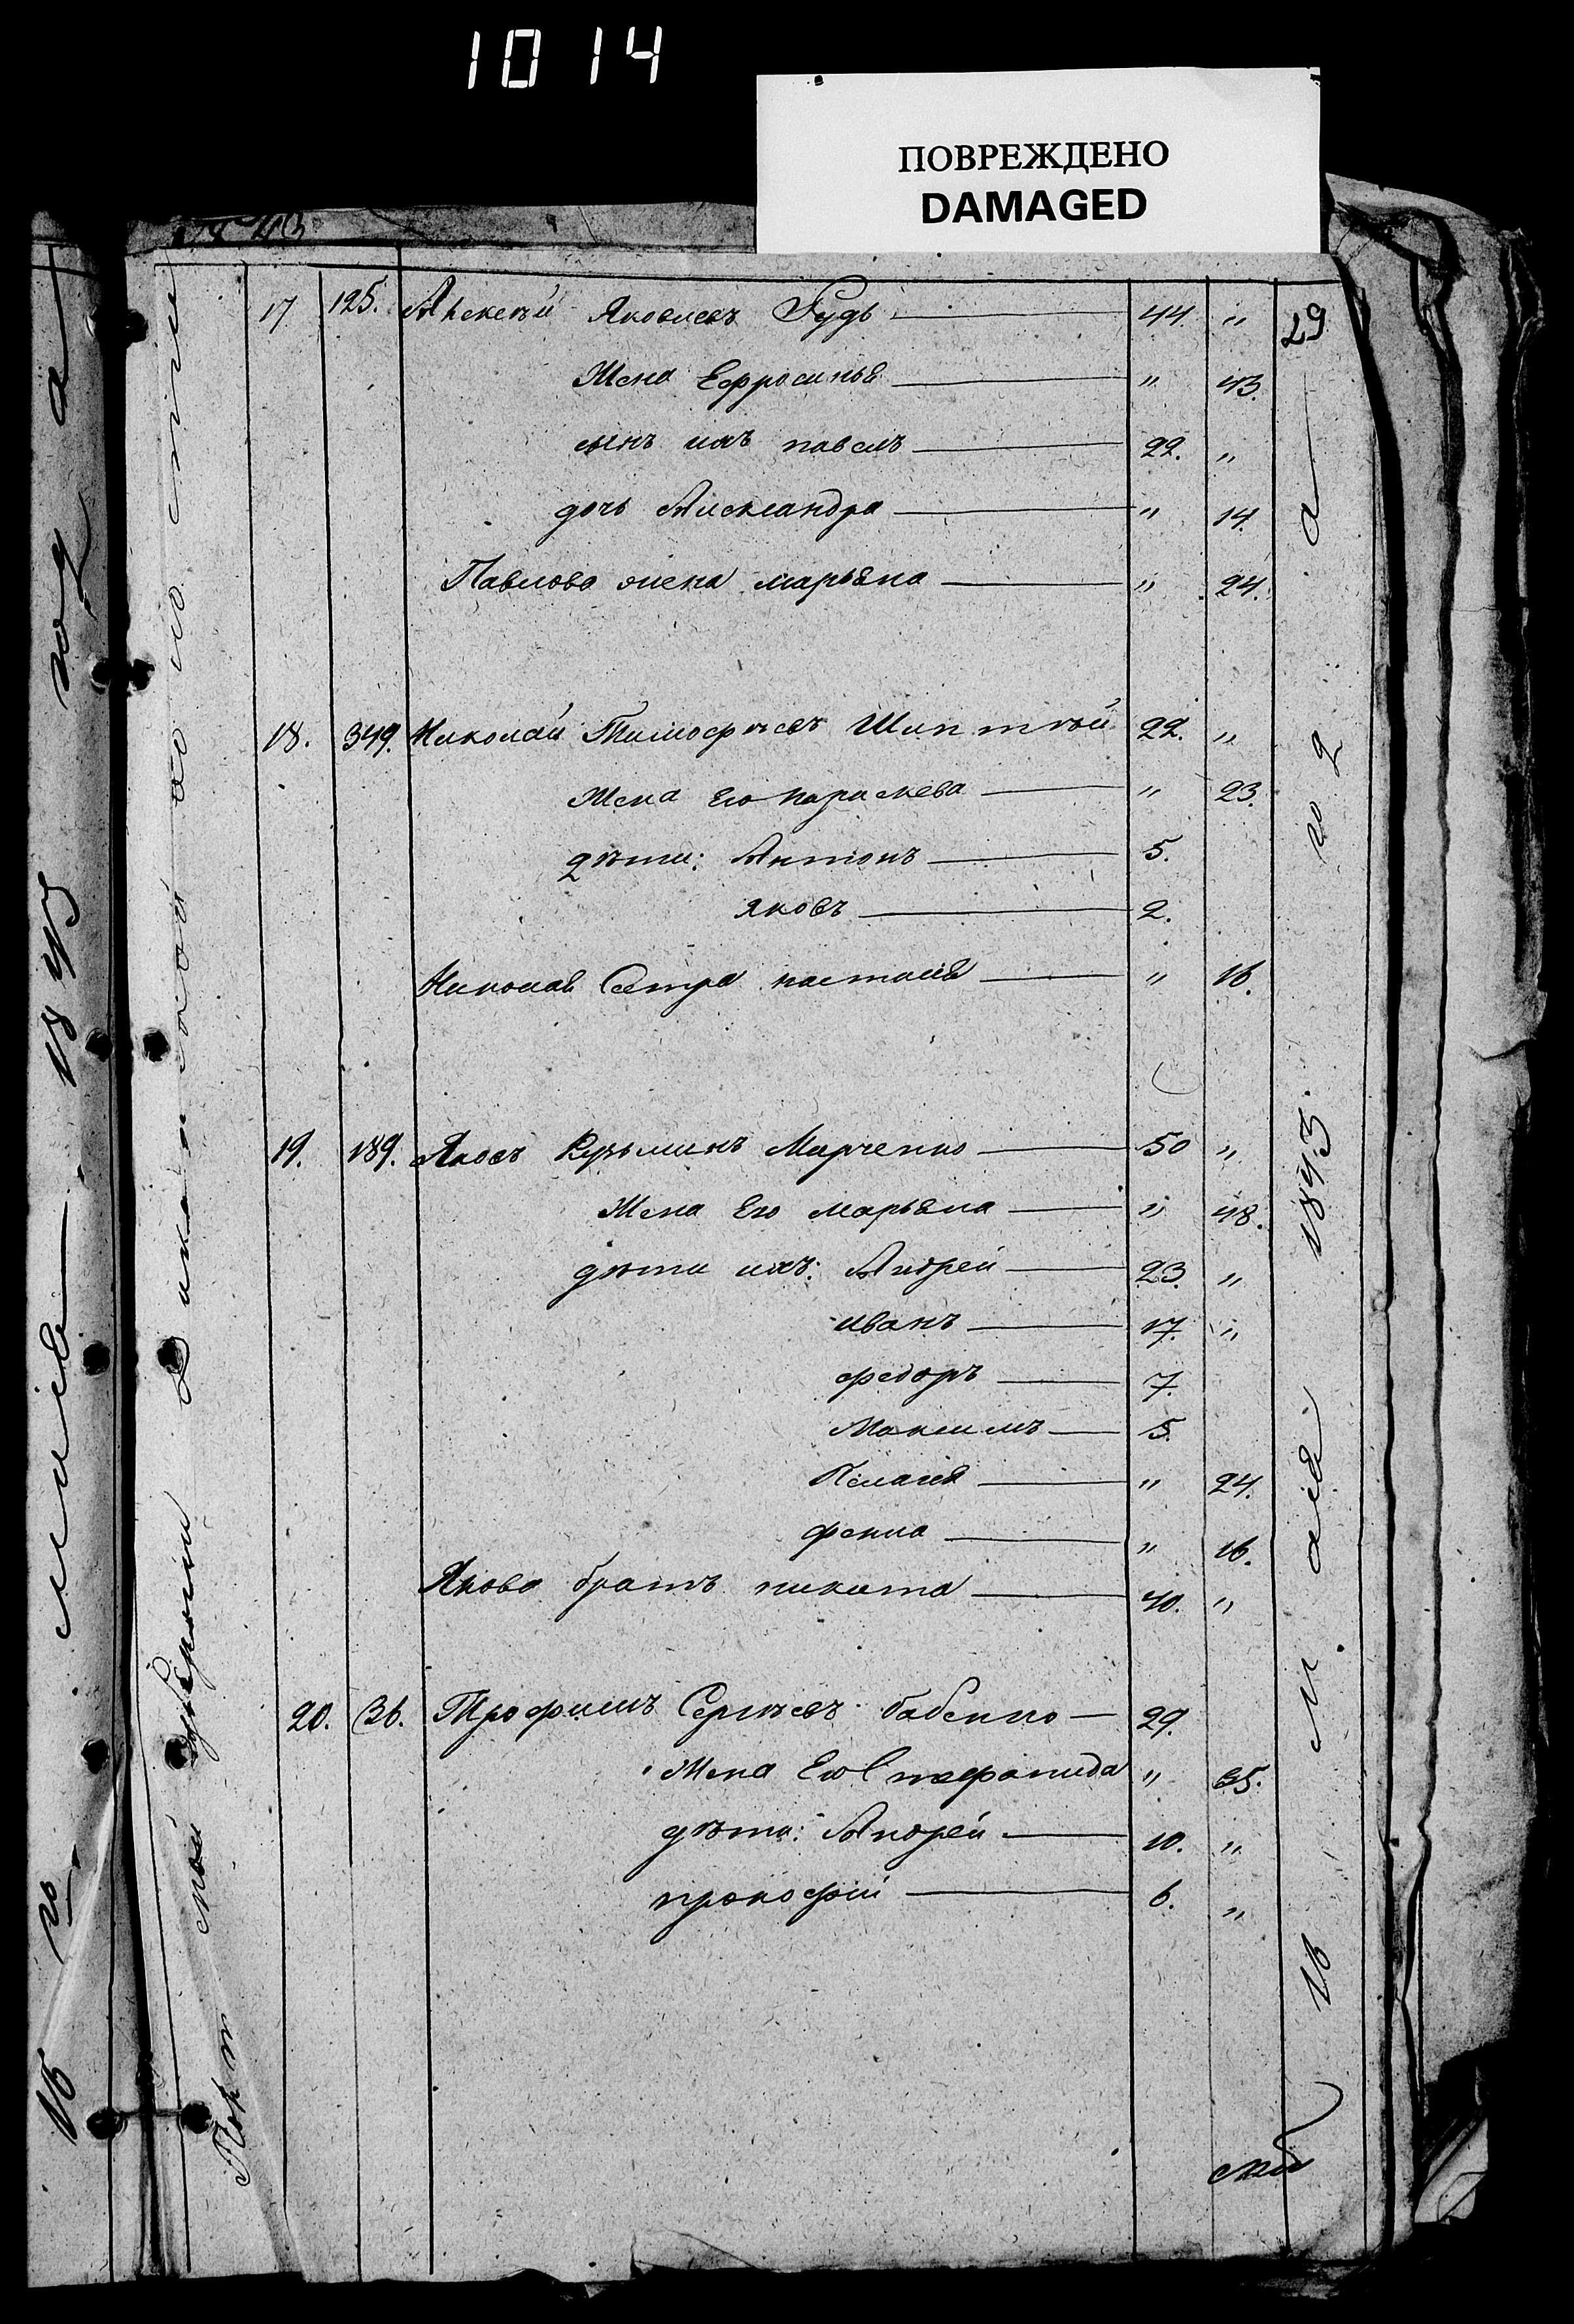 1014
ПОВРЕЖДЕНО
DAMAGED
29
17 125. Алексѣй Яковлевъ Рудь 44. "
Жена Ефросинья " 43.
сынъ ихъ павелъ 22. "
дочь Александра " 14.
Павлова жена марьяна " 24.
18. 349. Николай Тимофѣевъ 22. "
Жена Его параскева " 23.
дѣти: Антонъ 5.
яковъ 2.
Николая Сестра настасія " 16.
19. 189. Яковъ Кузьминъ Марченко 50 "
Жена Его марьяна " 48.
дѣти ихъ: Андрей 23. "
иванъ 17. "
федоръ 7.
Максимъ 5.
Пелагея " 24.
фекла " 16.
Якова братъ никита 40. "
20. 36. Трофимъ Сергѣевъ бабенко 29.
Жена Его Степанида " 35.
дѣти: Андрей 10. "
прокофій 6. "
16 Мая 1843. года
16 го 1843 года